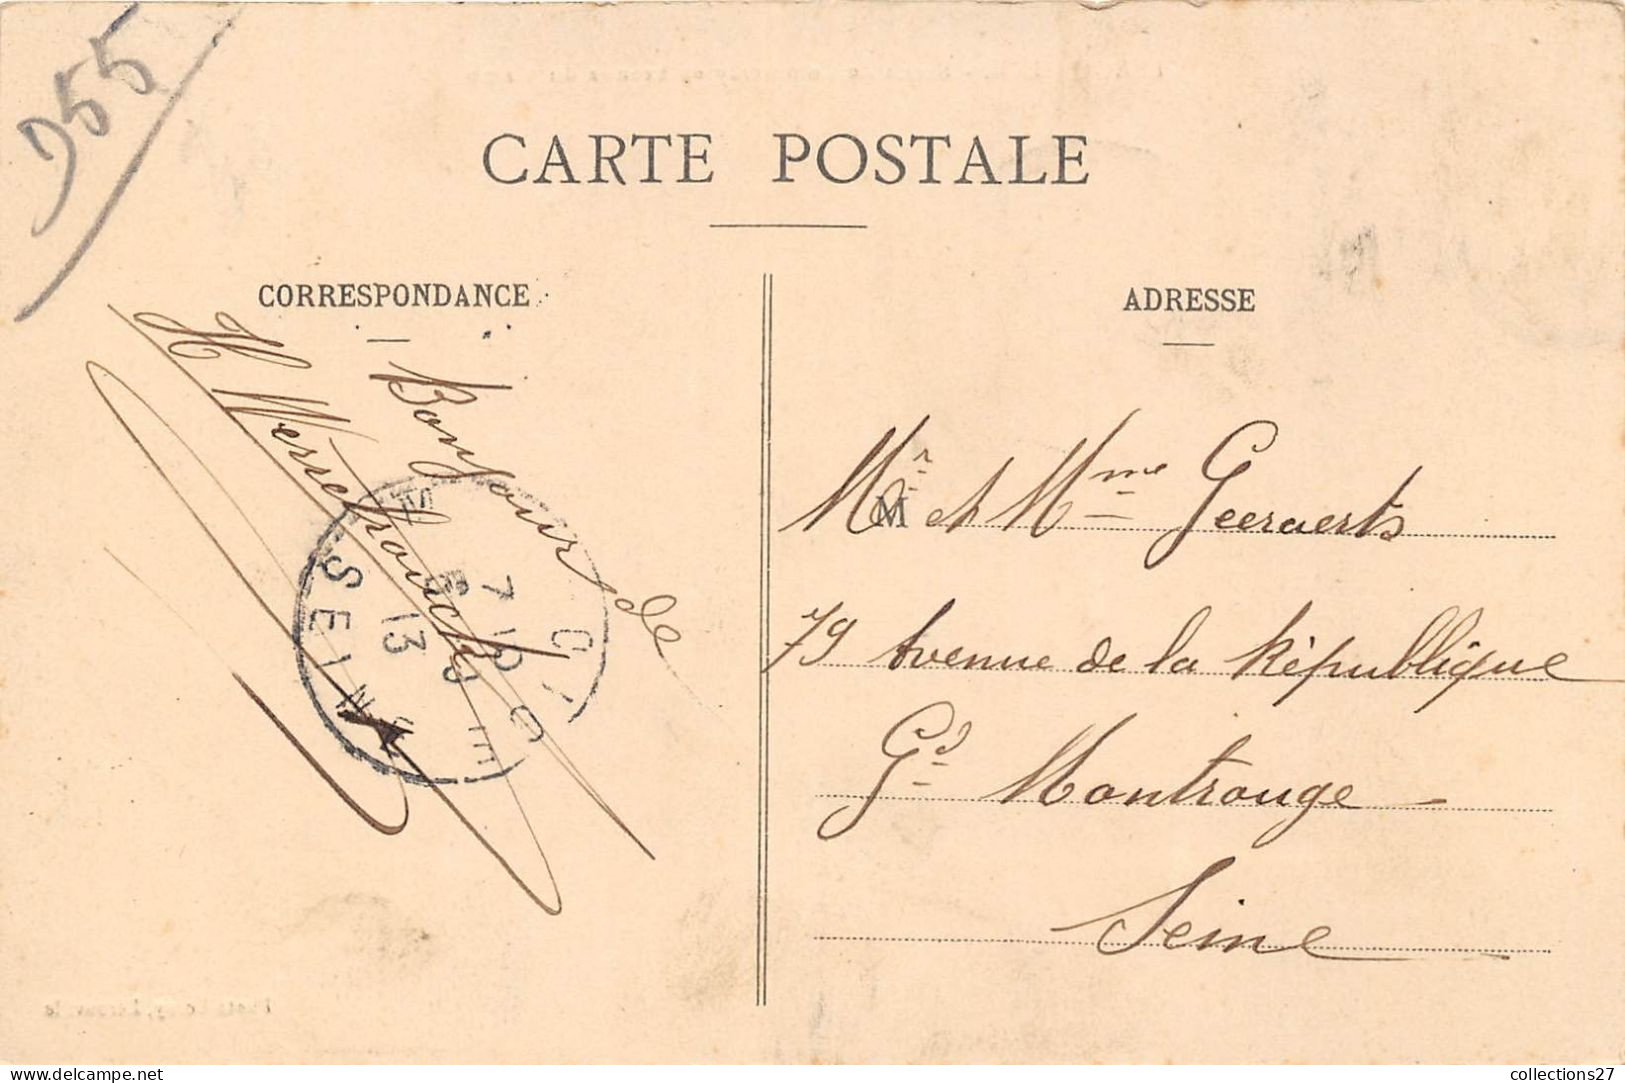 955
CARTE POSTALE
CORRESPONDANCE
Bonjour de
H
SEINE
7
13
ADRESSE
M
Mr et Mme Geeraerts
79 Avenue de la République
Gd Montrouge
Seine
delcampe.net
collections27